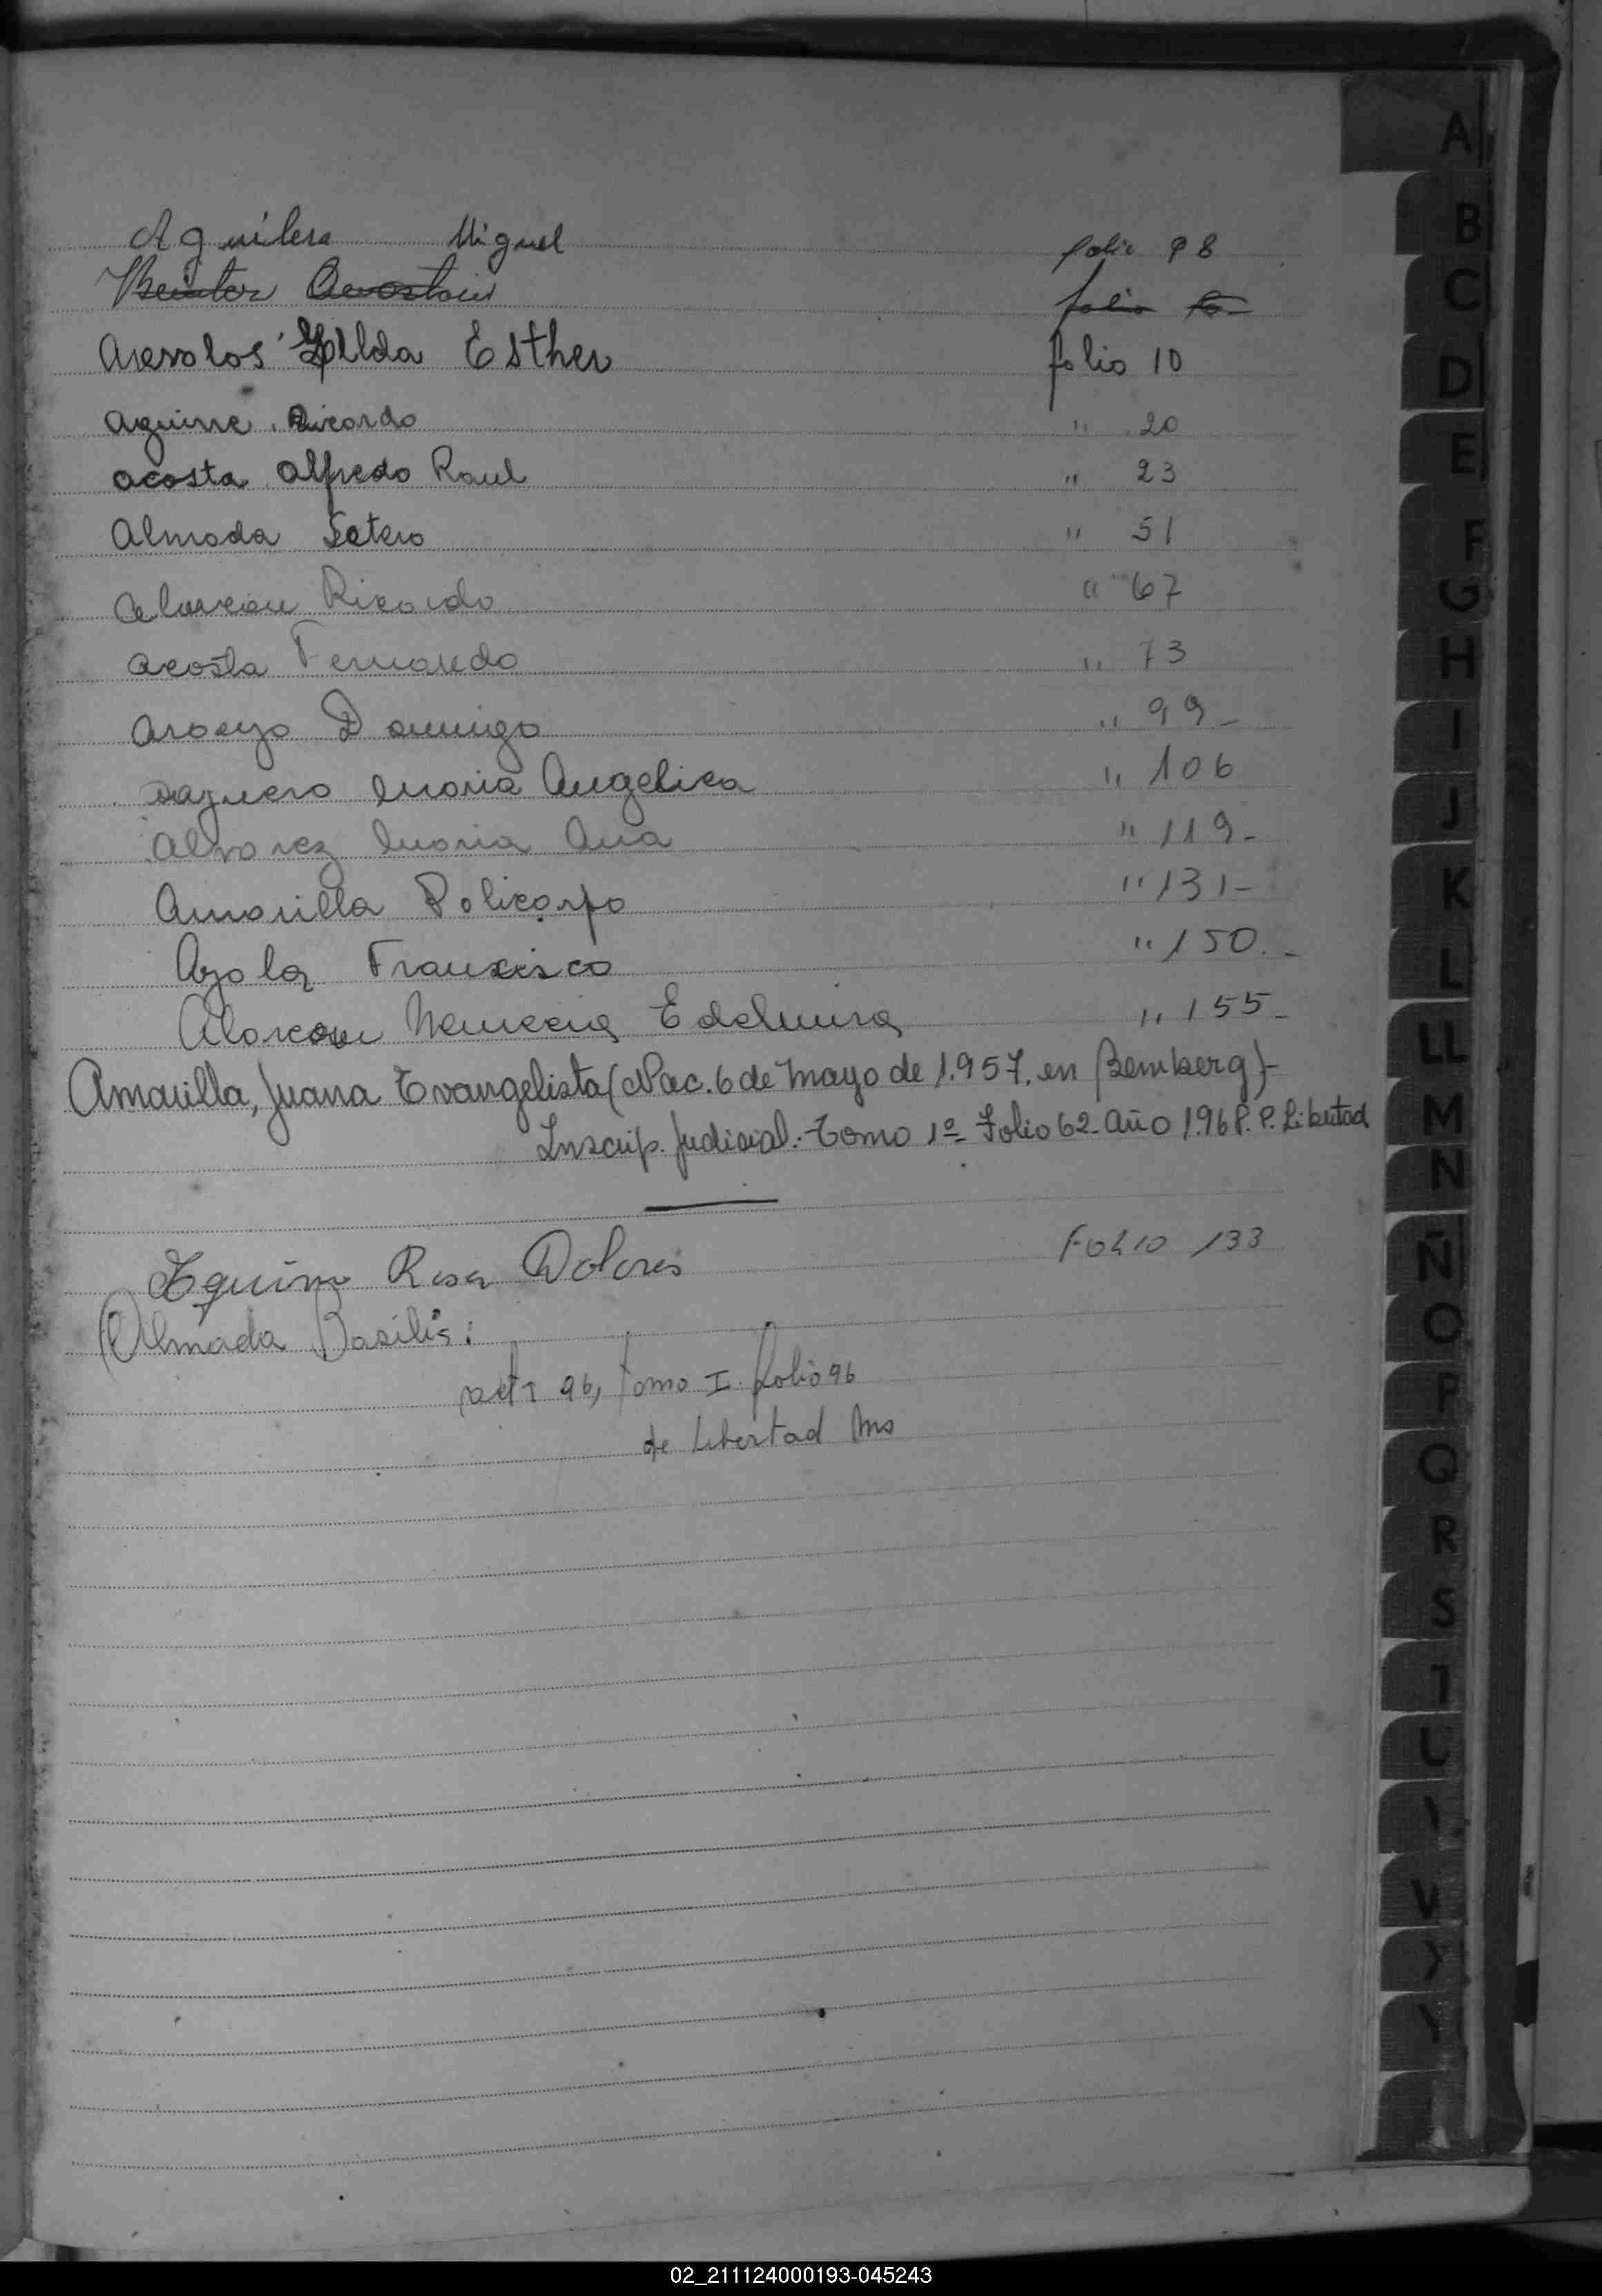 Aguilera Miguel folio 98
folio
Arevalos Gilda Esther folio 10
Aguirre Ricardo " 20
Acosta Alfredo Raul " 23
Almada Sotero " 51
Alarcon Ricardo " 67
Acosta Fernando " 73
Aroeyo Domingo " 99-
Maria Angelica " 106
Alvarez Maria Ana " 119-
Amarilla Policarpo " 131-
Ayala Francisco " 150.-
Alarcon Nemecia Edelmira " 155-
Amarilla, Juana Evangelista (Nac. 6 de Mayo de 1.957, en Bemberg)-
Inscrip. Judicial.- Tomo 1º- Folio 62- Año 1.968. P. Libertad
Rosa Dolores FOLIO 133
Almada Basilis:
act. 96, tomo I. folio 96
de Libertad Ms
A
B
C
D
E
F
G
H
I
J
K
L
LL
M
N
Ñ
O
P
Q
R
S
T
U
V
Y
02_211124000193-045243